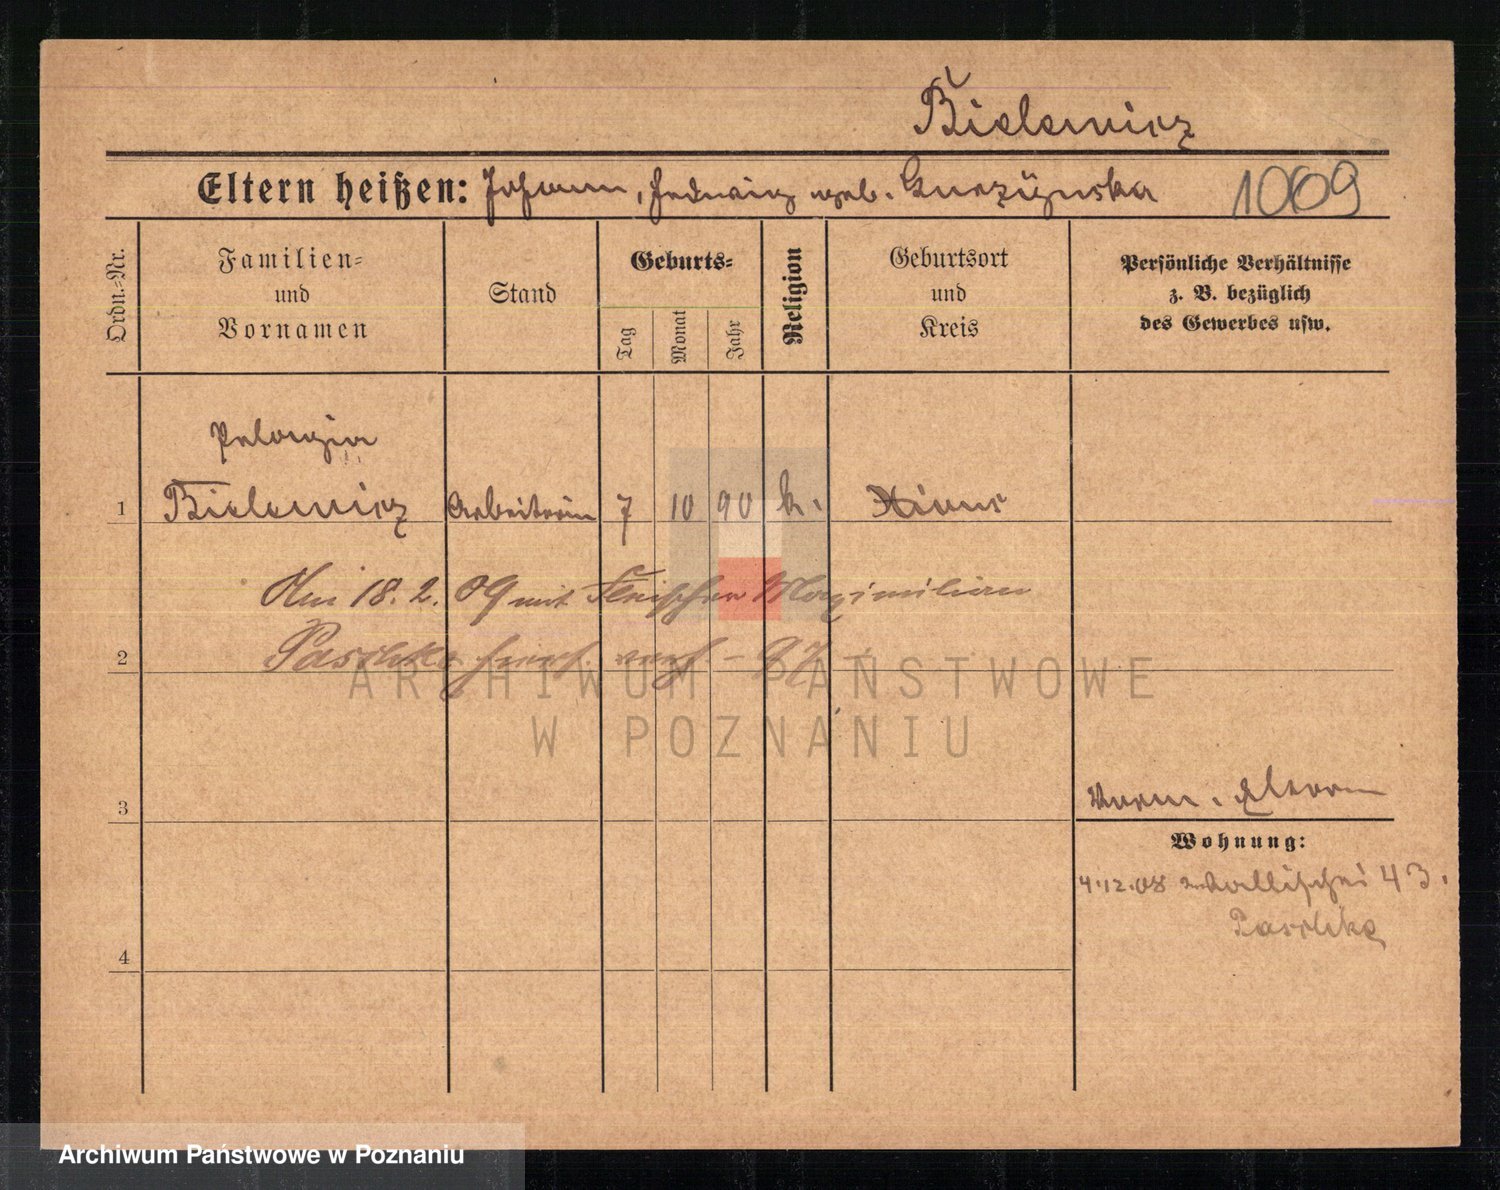 Bielewicz
Eltern heißen: Johann, Hedwig geb. 1009
Ordn.-Nr.
Familien-
und
Vornamen
Stand
Geburts-
Tag
Monat
Jahr
Religion
Geburtsort
und
Kreis
Persönliche Verhältnisse
z. B. bezüglich
des Gewerbes usw.
Pelagia
1 Bielewicz Arbeiterin 7 10 90 k. Xions
Am 18. 2. 09 mit Fleischer Maximilian
2 Paschke hier verh.
ARCHIWUM PAŃSTWOWE
W POZNANIU
3 Eltern
Wohnung:
4.12.08 Wallischei 43.
Paschke
4
Archiwum Państwowe w Poznaniu